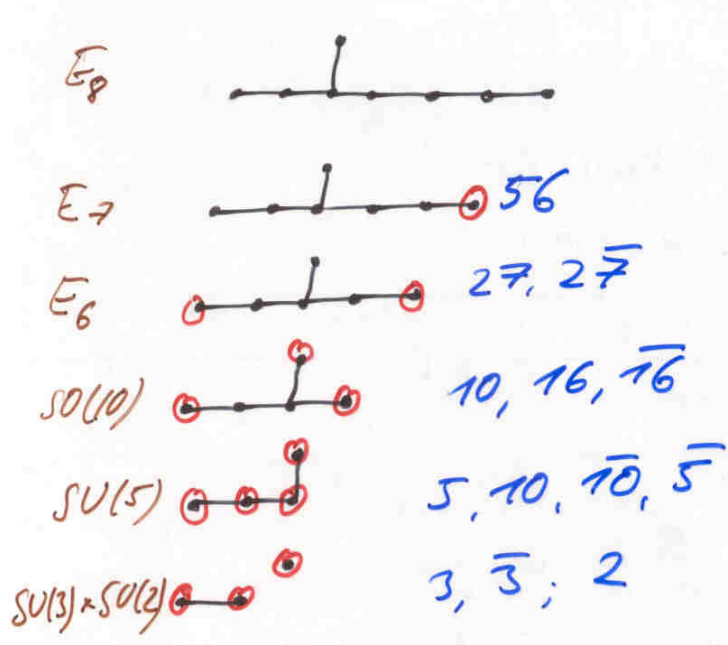 E₈
E₇ 56
E₆ 27, 2̅7̅
SO(10) 10, 16, 1̅6̅
SU(5) 5, 10, 1̅0̅, 5̅
SU(3)×SU(2) 3, 3̅; 2